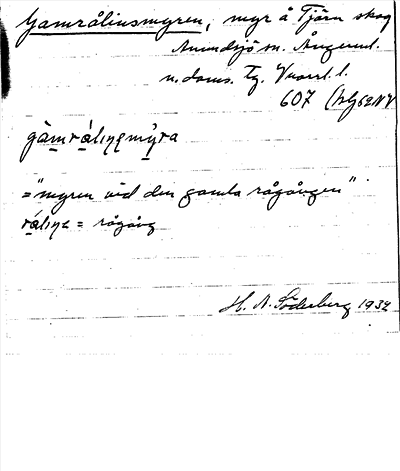 Gamrålinsmyren, myr å Tjärn skog
Anundsjö sn. Ångerml.
n. doms. Tg.
607
gàmrálıŋɐmy̆ra
="myren vid den gamla rågången"
rálıŋɐ = rågång
H. A. Söderberg 1932